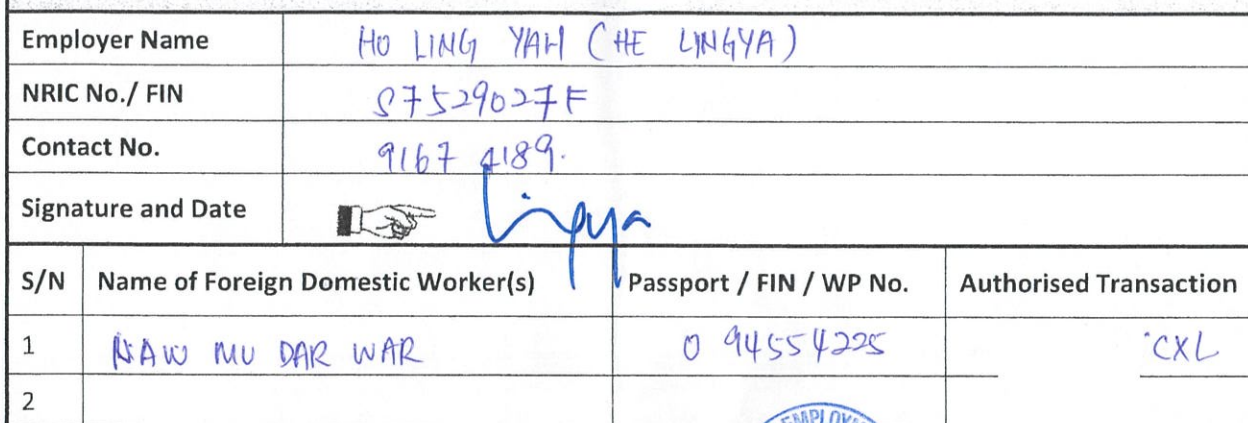 Employer Name HO LING YAH (HE LINGYA)
NRIC No./ FIN S7529027F
Contact No. 9167 4189.
Signature and Date Lingya
S/N Name of Foreign Domestic Worker(s) Passport / FIN / WP No. Authorised Transaction
1 NAW MU DAR WAR 0 94554225 CXL
2
EMPLOY